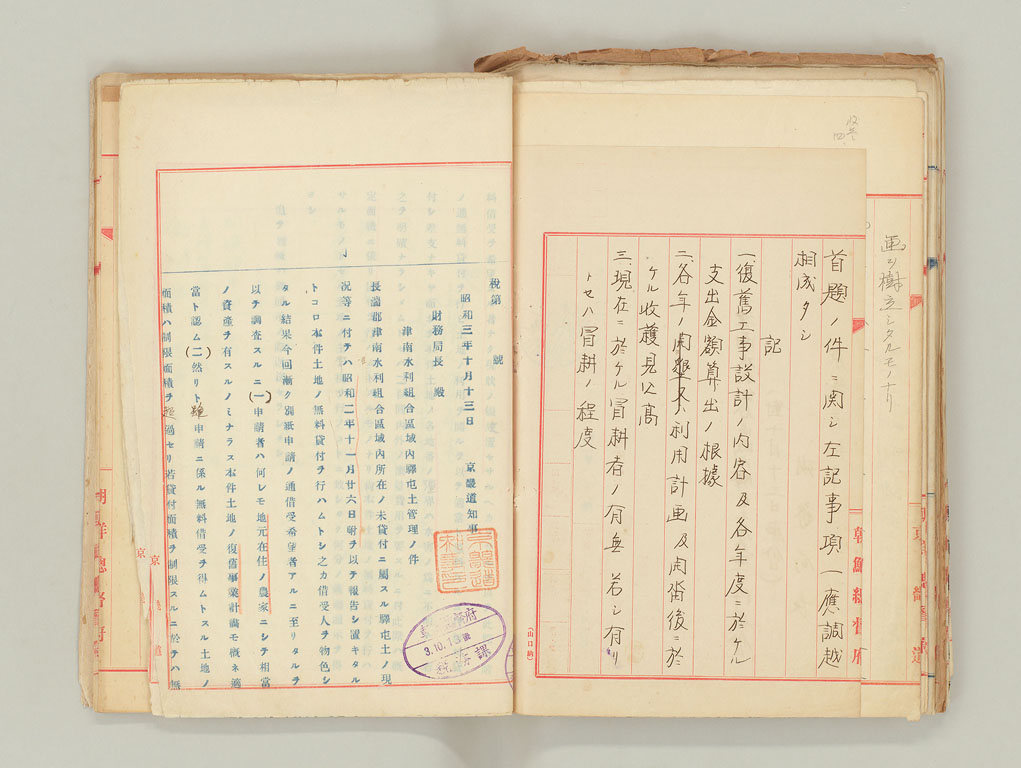 首題ノ件ニ関シ左記事項一應調越
相成タシ
記
一、復舊工事設計ノ内容及各年度ニ於ケル
支出金額算出ノ根據
二、各年ノ開墾利用計画及開畓後ニ於
ケル收護見込高
三、現在ニ於ケル冒耕者ノ有無若シ有リ
トセハ冒耕ノ程度
朝鮮總督府
税第 號
昭和三年十月十三日
京畿道知事
財務局長 殿
津南水利組合區域內驛屯土管理ノ件
長湍郡津南水利組合區域內所在ノ未貸付ニ屬スル驛屯土ノ現
況等ニ付テハ昭和二年十一月廿六日附ヲ以テ報告シ置キタル
トコロ本件土地ノ無料貸付ヲ行ハムトシ之カ借受人ヲ物色シ
タル結果今回漸ク別紙申請ノ通借受希望者アルニ至リタルヲ
以テ調査スルニ(一)申請者ハ何レモ地元在住ノ農家ニシテ相當
ノ資產ヲ有スルノミナラス本件土地ノ復舊事業計畵モ槪ネ適
當ト認ム(二)然リト雖申請ニ係ル無料借受ヲ得ムトスル土地ノ
面積ハ制限面積ヲ超過セリ若貸付面積ヲ制限スルニ於テハ無
3.10.13